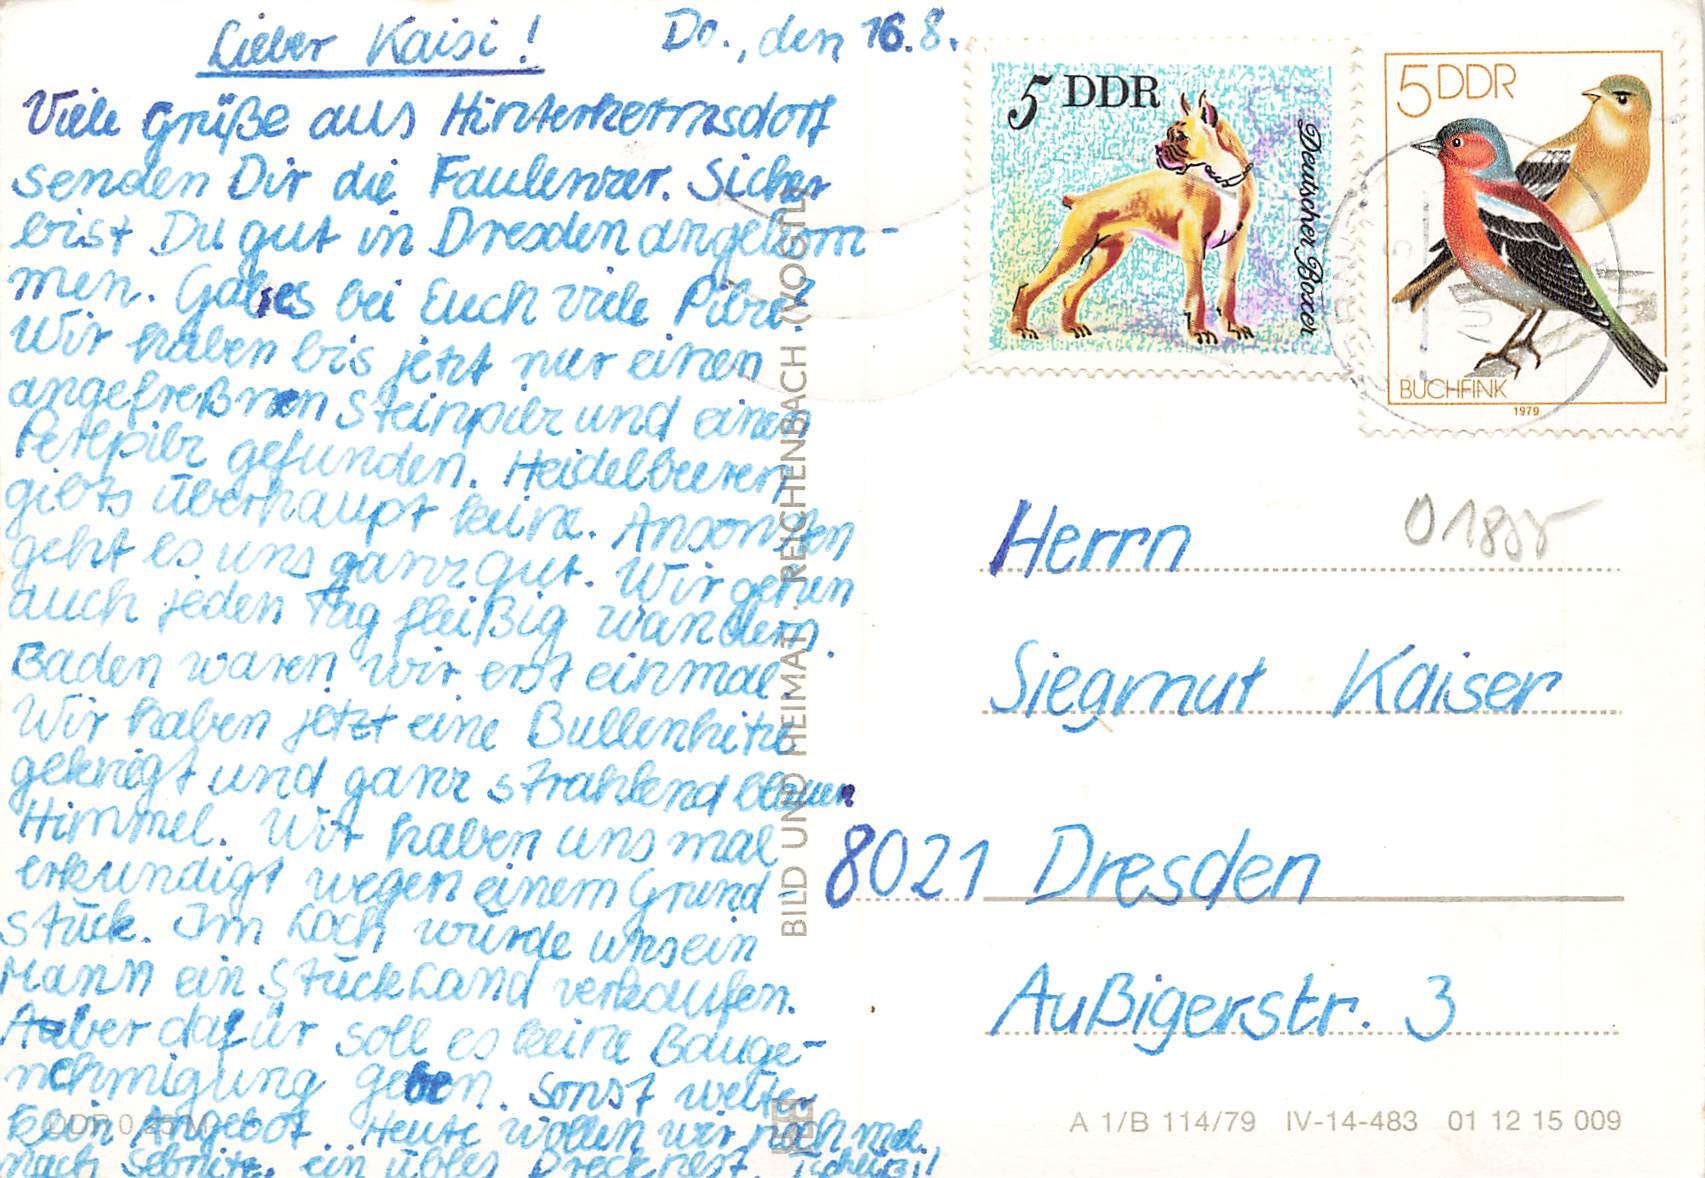 Lieber Kaisi!
Do., den 16.8.
Viele Grüße aus Hinterhermsdorf
senden Dir die Faulenzer. Sicher
bist Du gut in Dresden angekom-
men. Gab es bei Euch viele Pilze?
Wir haben bis jetzt nur einen
angefreßnen Steinpilz und einen
Perlpilz gefunden. Heidelbeeren
gibts überhaupt keine. Ansonsten
geht es uns ganz gut. Wir gehen
auch jeden Tag fleißig wandern.
Baden waren wir erst einmal.
Wir haben jetzt eine Bullenhitze
gekriegt und ganz strahlend blauen
Himmel. Wir haben uns mal
erkundigt wegen einem Grund-
stück. Im Loch würde uns ein
Mann ein Stück Land verkaufen.
Aber dafür soll es keine Bauge-
nehmigung geben. Sonst weiter
kein Angebot. Heute wollen wir noch mal
nach Sebnitz, ein übles Drecknest. Tschüßi!
5 DDR
Deutscher Boxer
5 DDR
BUCHFINK
1979
Herrn
Siegmut Kaiser
8021 Dresden
Außigerstr. 3
BILD UND HEIMAT REICHENBACH (VOGTL)
DDR 0,25 M
A 1/B 114/79 IV-14-483 01 12 15 009